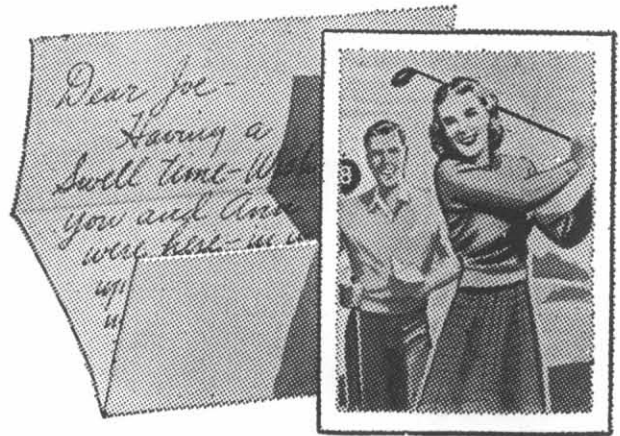 Dear Joe-
Having a
Swell time-Wish
you and Ann
were here-in